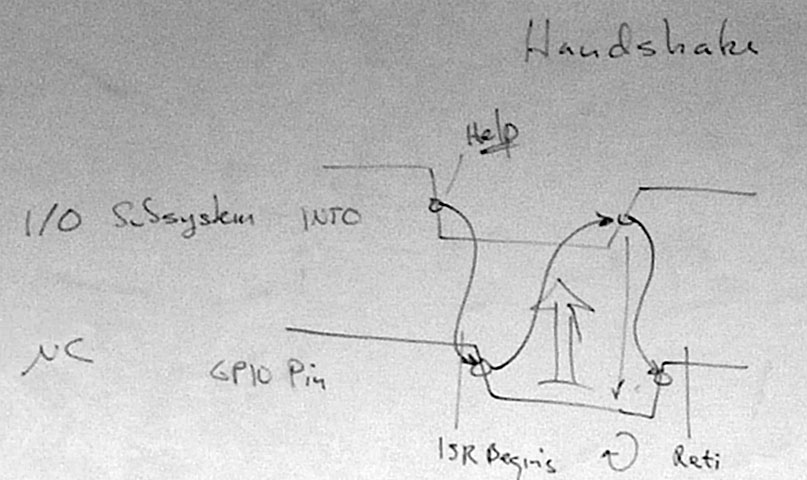 Handshake
Help
I/O Subsystem INT0
μC
GPIO Pin
ISR Begins
Reti